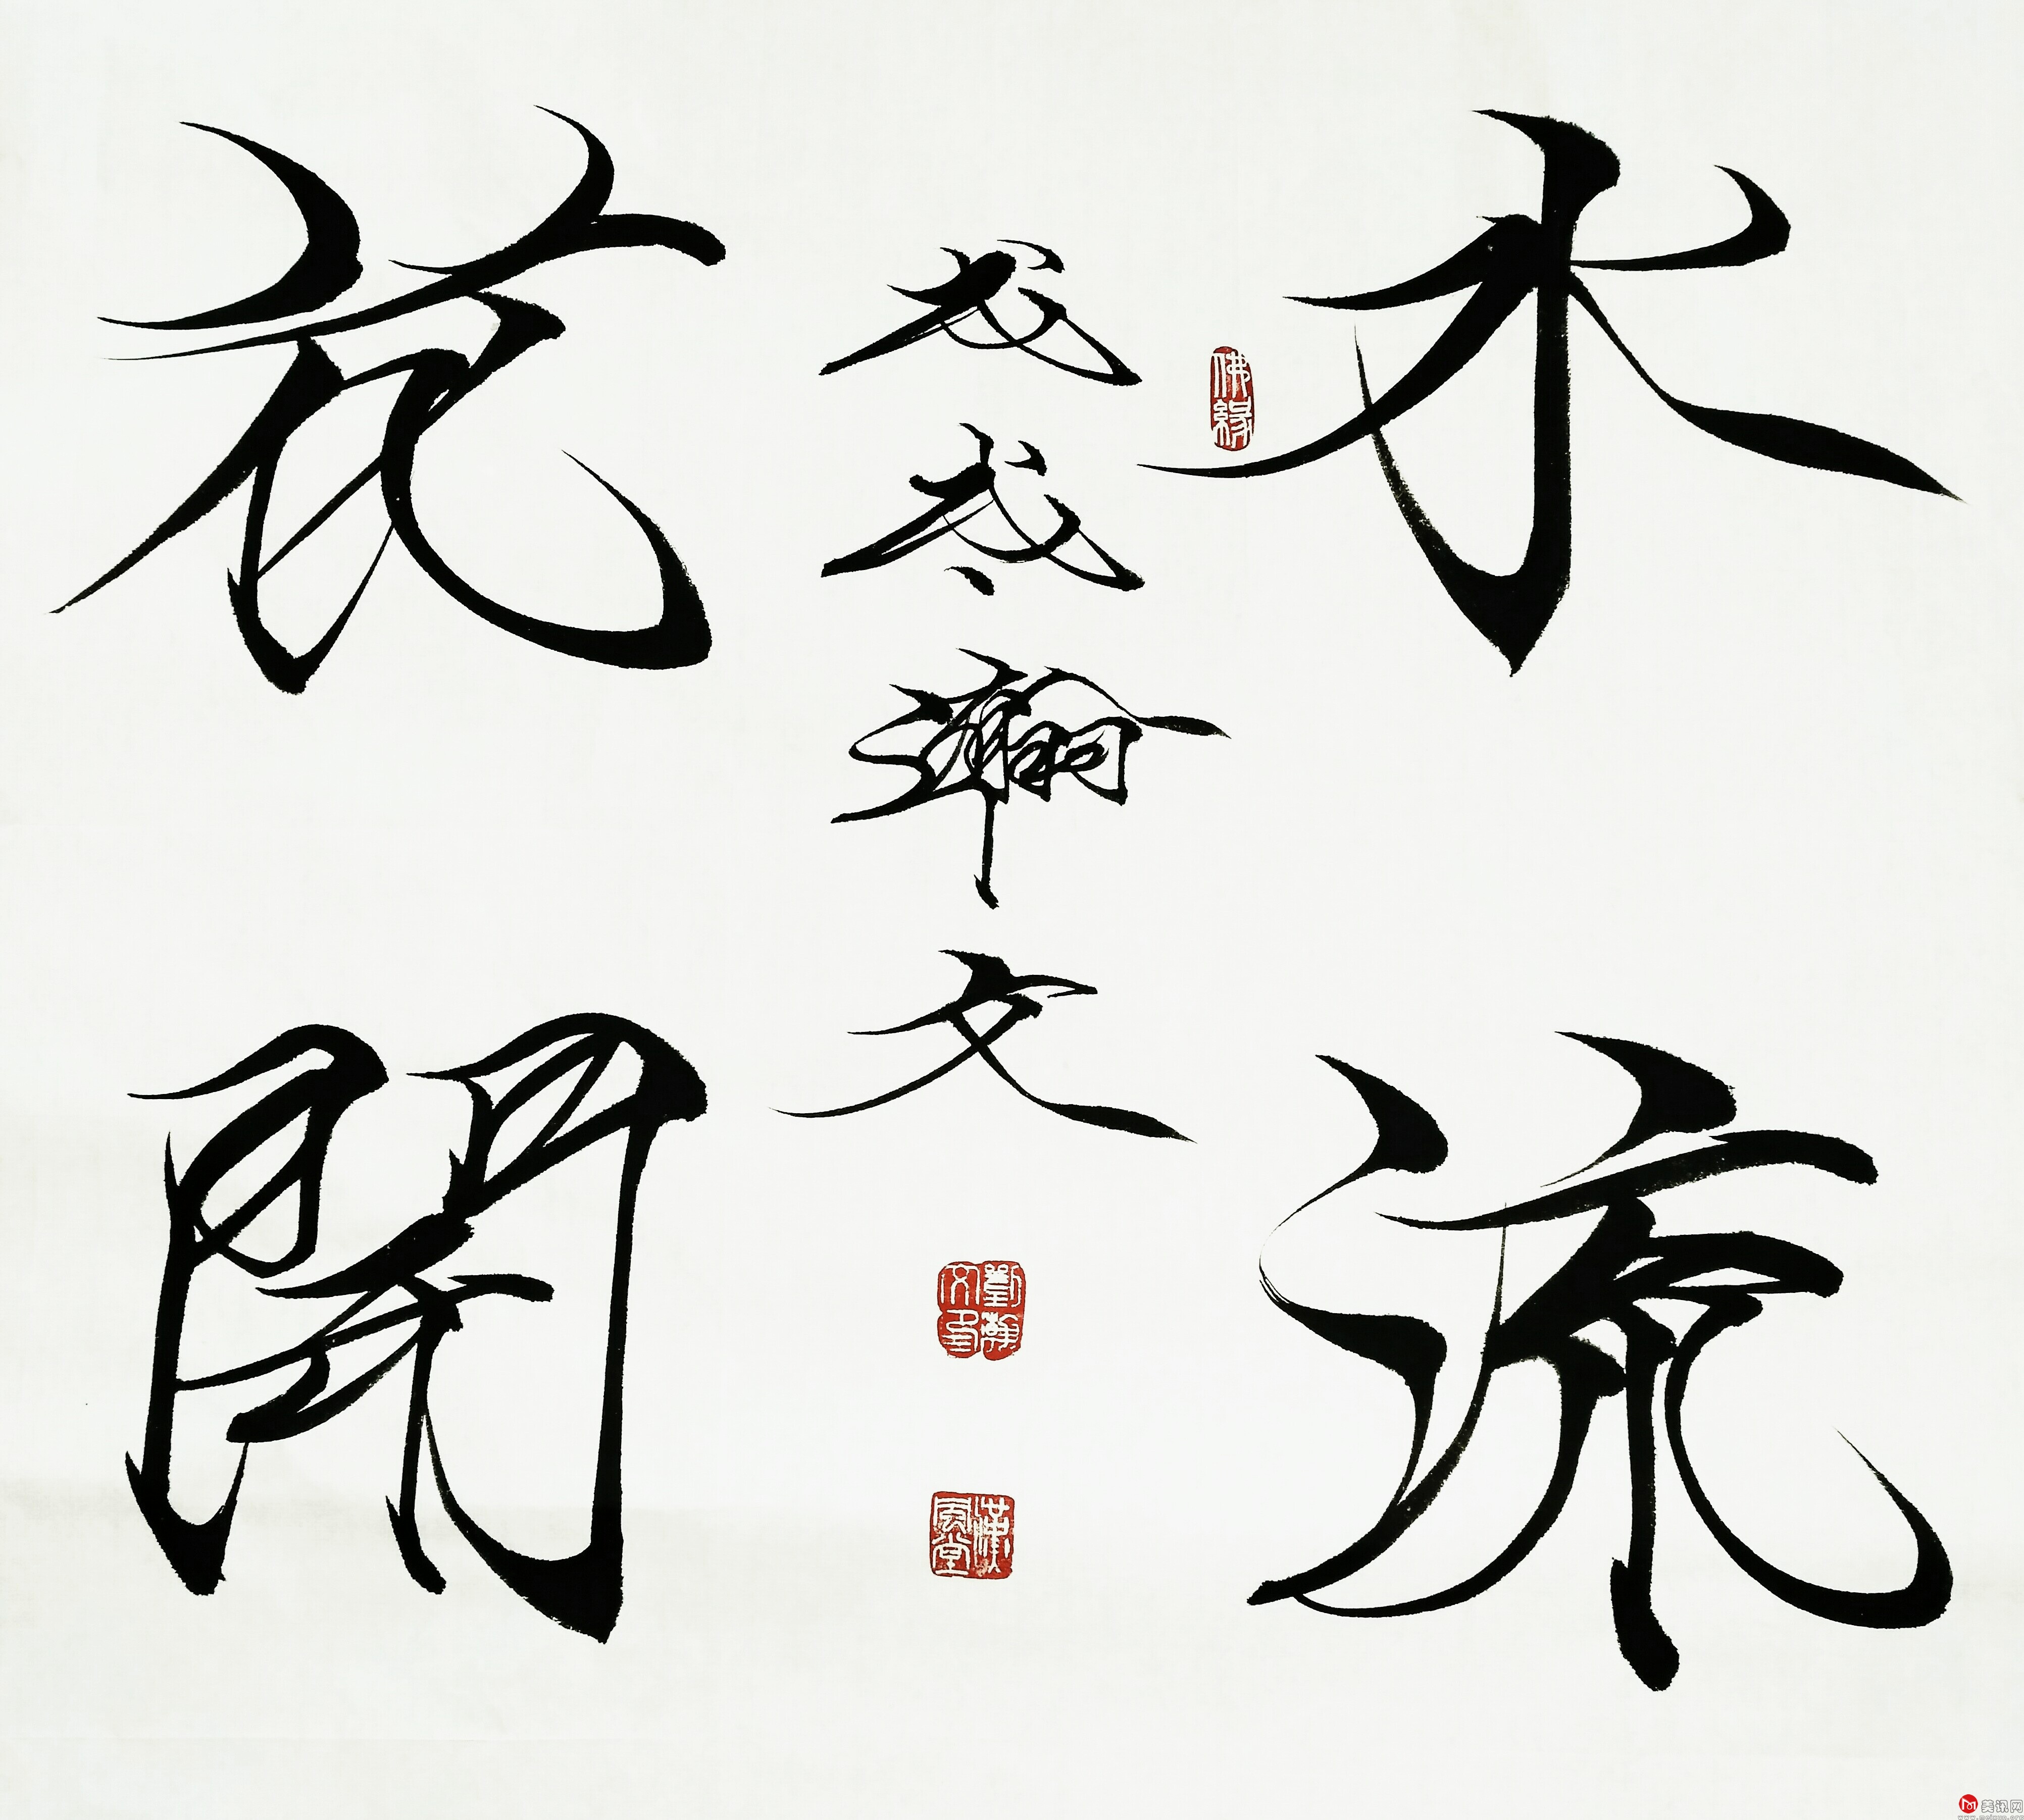 水流
花開
戊戌冬瀚文
佛緣
劉瀚文印
漢風堂
美讯网